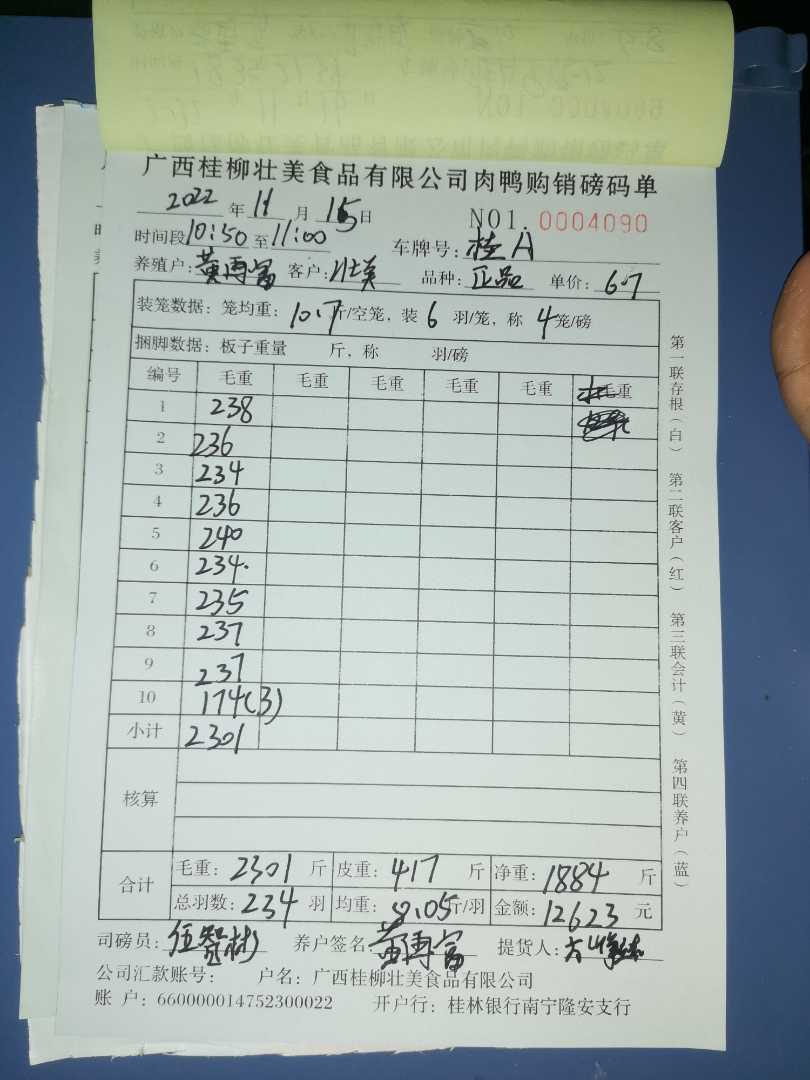 广西桂柳壮美食品有限公司肉鸭购销磅码单
2022 年 11 月 15 日 NO1. 0004090
时间段 10:50 至 11:00 车牌号: 桂A
养殖户: 黄再富 客户: 壮美 品种: 正品 单价: 6.7
装笼数据: 笼均重: 10.7 斤/空笼, 装 6 羽/笼, 称 4 笼/磅
捆脚数据: 板子重量 斤, 称 羽/磅
编号 毛重 毛重 毛重 毛重 毛重 毛重
1 238
2 236
3 234
4 236
5 240
6 234.
7 235
8 237
9 237
10 174(3)
小计 2301
核算
合计 毛重: 2301 斤 皮重: 417 斤 净重: 1884 斤
总羽数: 234 羽 均重: 8.05 斤/羽 金额: 12623 元
司磅员: 伍智彬 养户签名: 黄再富 提货人:
公司汇款账号: 户名: 广西桂柳壮美食品有限公司
账 户: 660000014752300022 开户行: 桂林银行南宁隆安支行
第一联存根(白) 第二联客户(红) 第三联会计(黄) 第四联养户(蓝)